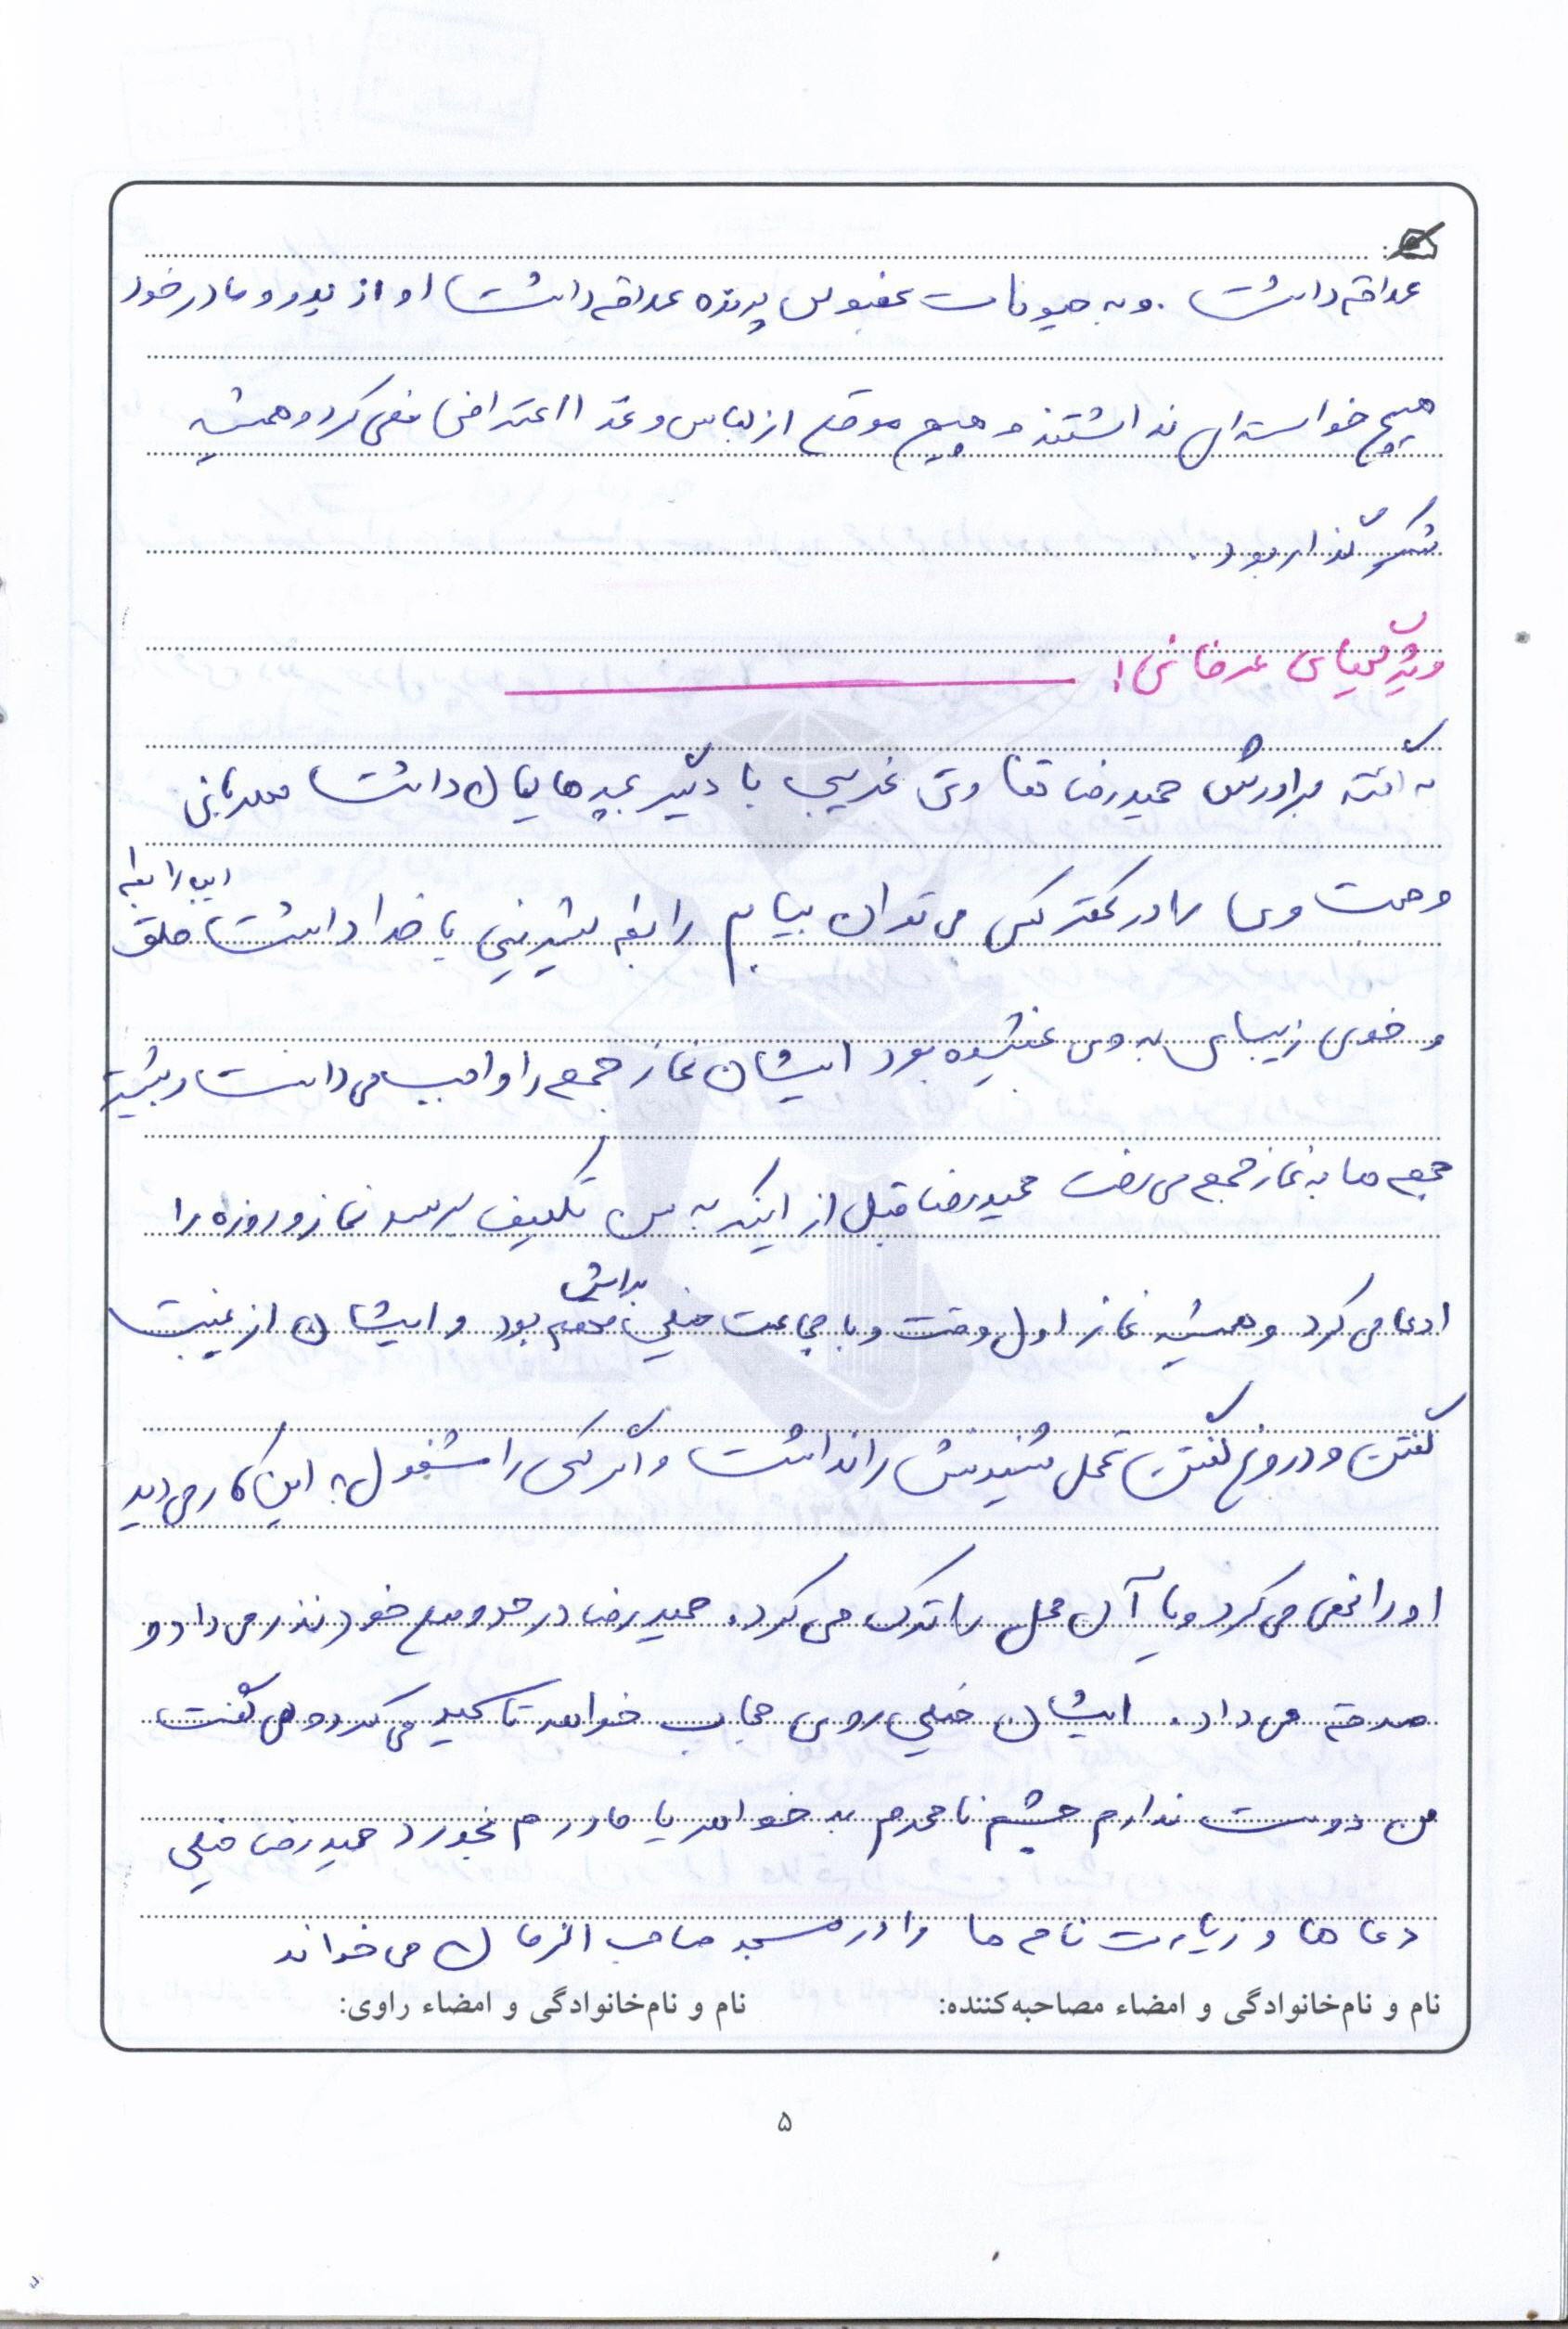 علاقه داشت. و به حیوانات بخصوص پرنده علاقه داشت او از پدر و مادر خود
هیچ خواسته‌ای نداشتند و هیچ موقع از لباس و غذا اعتراض نمی‌کرد و همیشه
شکرگذار بود.
ویژگیهای عرفانی:
به گفته برادرش حمیدرضا تفاوتی غریب با دیگر بچه‌هایمان داشت مهربانی
و محبت وی را در کمتر کسی می‌توان بیابم رابطه شیرینی با خدا داشت این رابطه خلق
و خوی زیبای به وی بخشیده بود ایشان نماز جمعه را واجب می‌دانست و بیشتر
جمعه‌ها به نماز جمعه می‌رفت حمیدرضا قبل از اینکه به سن تکلیف برسد نماز و روزه را
ادا می‌کرد و همیشه نماز اول وقت و با جماعت خیلی برایش مهم بود و ایشان از غیبت
گفتن و دروغ گفتن تحمل شنیدنش را نداشت و اگر کسی را مشغول به این کار می‌دید
او را نهی می‌کرد و یا آن محل را ترک می‌کرد. حمیدرضا در حد وسع خود نذر می‌داد و
صدقه می‌داد. ایشان خیلی روی حجاب خواهر تاکید می‌کرد و می‌گفت
من دوست ندارم چشم نامحرم به خواهر یا مادرم بخورد حمیدرضا خیلی
دعاها و زیارت نامه‌ها را در مسجد صاحب الزمان می‌خواند
نام و نام‌خانوادگی و امضاء مصاحبه‌کننده: نام و نام‌خانوادگی و امضاء راوی:
۵